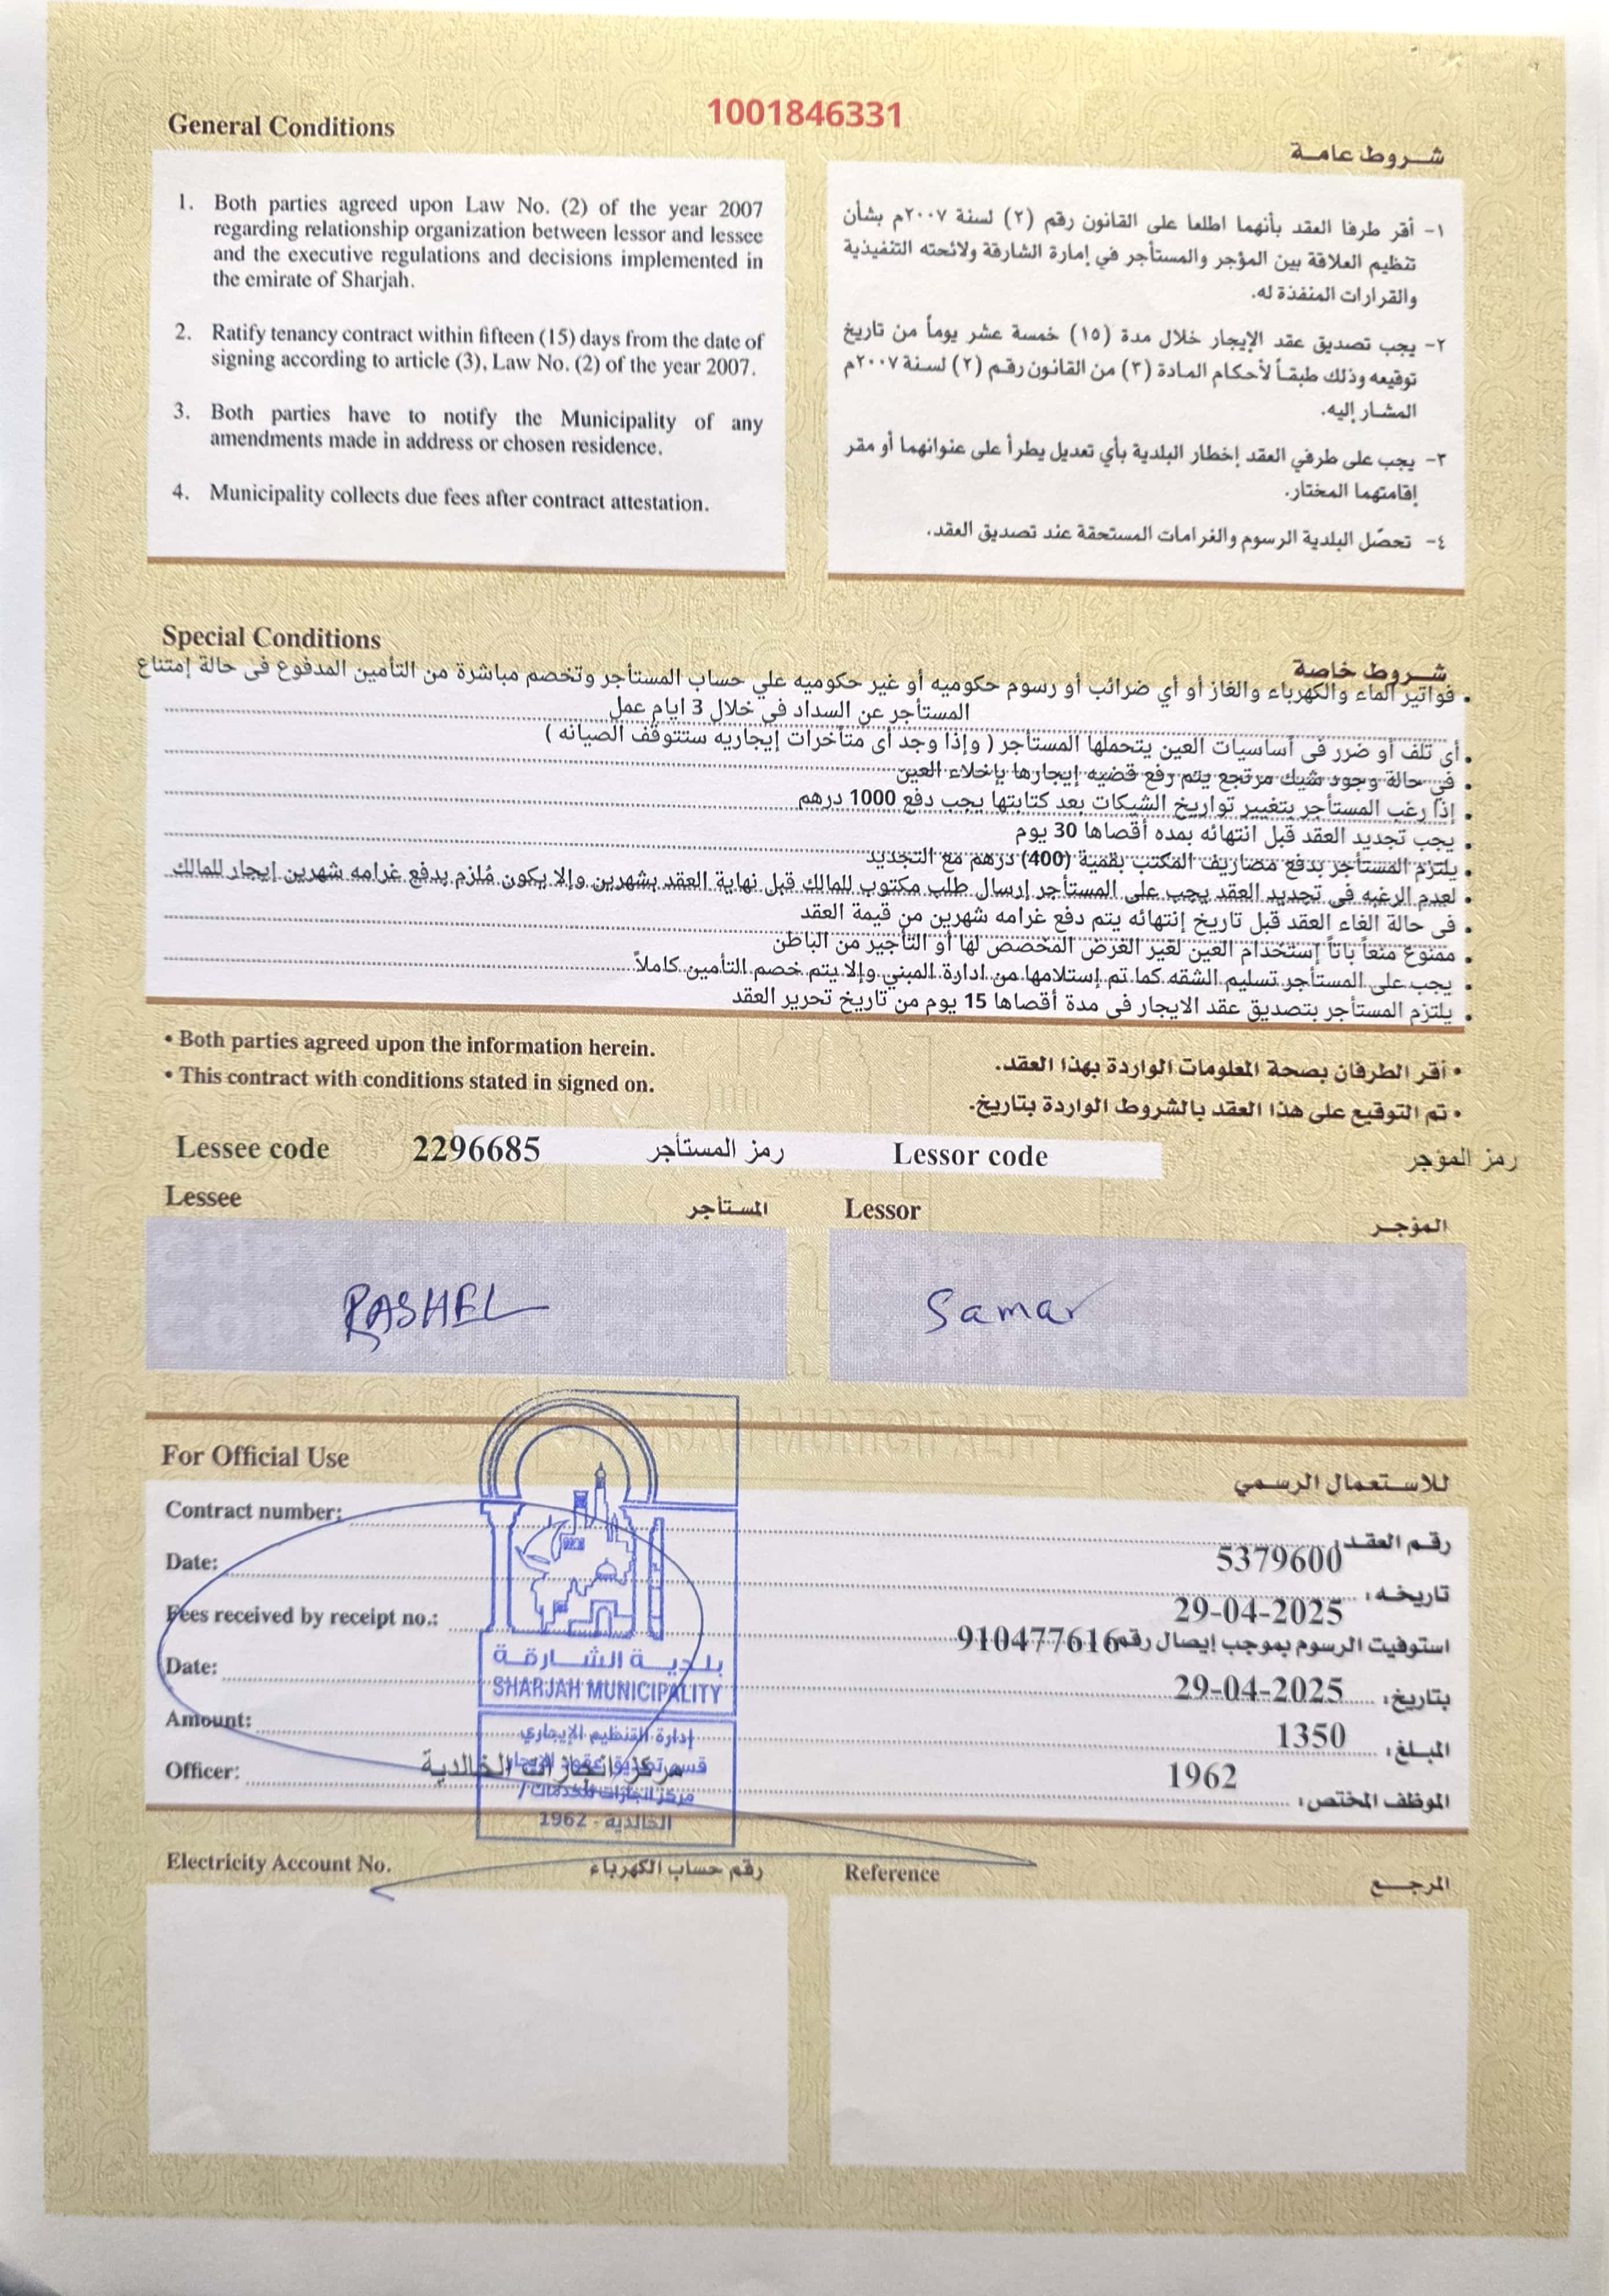 1001846331
General Conditions
شروط عامة
1. Both parties agreed upon Law No. (2) of the year 2007
regarding relationship organization between lessor and lessee
and the executive regulations and decisions implemented in
the emirate of Sharjah.
2. Ratify tenancy contract within fifteen (15) days from the date of
signing according to article (3), Law No. (2) of the year 2007.
3. Both parties have to notify the Municipality of any
amendments made in address or chosen residence.
4. Municipality collects due fees after contract attestation.
١- أقر طرفا العقد بأنهما اطلعا على القانون رقم (٢) لسنة ٢٠٠٧م بشأن
تنظيم العلاقة بين المؤجر والمستأجر في إمارة الشارقة ولائحته التنفيذية
والقرارات المنفذة له.
٢- يجب تصديق عقد الإيجار خلال مدة (١٥) خمسة عشر يوماً من تاريخ
توقيعه وذلك طبقاً لأحكام المادة (٣) من القانون رقم (٢) لسنة ٢٠٠٧م
المشار إليه.
٣- يجب على طرفي العقد إخطار البلدية بأي تعديل يطرأ على عنوانهما أو مقر
إقامتهما المختار.
٤- تحصّل البلدية الرسوم والغرامات المستحقة عند تصديق العقد.
Special Conditions
شروط خاصة
• فواتير الماء والكهرباء والغاز أو أي ضرائب أو رسوم حكوميه أو غير حكوميه علي حساب المستأجر وتخصم مباشرة من التأمين المدفوع فى حالة إمتناع
المستأجر عن السداد في خلال 3 ايام عمل
• أى تلف أو ضرر فى أساسيات العين يتحملها المستأجر ( وإذا وجد اى متأخرات إيجاريه ستتوقف الصيانه )
• في حالة وجود شيك مرتجع يتم رفع قضيه إيجارها بإخلاء العين
• إذا رغب المستأجر بتغيير تواريخ الشيكات بعد كتابتها يجب دفع 1000 درهم
• يجب تجديد العقد قبل انتهائه بمده أقصاها 30 يوم
• يلتزم المستأجر بدفع مصاريف المكتب بقمية (400) درهم مع التجديد
• لعدم الرغبه فى تجديد العقد يجب على المستأجر إرسال طلب مكتوب للمالك قبل نهاية العقد بشهرين وإلا يكون مُلزم بدفع غرامه شهرين إيجار للمالك
• فى حالة الغاء العقد قبل تاريخ إنتهائه يتم دفع غرامه شهرين من قيمة العقد
• ممنوع منعاً باتاً إستخدام العين لغير الغرض المخصص لها أو التأجير من الباطن
• يجب على المستأجر تسليم الشقه كما تم إستلامها من ادارة المبني وإلا يتم خصم التأمين كاملاً
• يلتزم المستأجر بتصديق عقد الايجار فى مدة أقصاها 15 يوم من تاريخ تحرير العقد
• Both parties agreed upon the information herein.
• This contract with conditions stated in signed on.
• أقر الطرفان بصحة المعلومات الواردة بهذا العقد.
• تم التوقيع على هذا العقد بالشروط الواردة بتاريخ.
Lessee code 2296685 رمز المستأجر Lessor code رمز المؤجر
Lessee المستأجر Lessor المؤجر
RASHEL Samar
For Official Use للاستعمال الرسمي
Contract number: رقم العقد: 5379600
Date: تاريخه: 29-04-2025
Fees received by receipt no.: استوفيت الرسوم بموجب إيصال رقم 910477616
Date: بتاريخ: 29-04-2025
Amount: المبلغ: 1350
Officer: الموظف المختص: 1962
مركز انجازات الخالدية
بلدية الشارقة
SHARJAH MUNICIPALITY
إدارة التنظيم الإيجاري
قسم تصديق عقود الإيجار
مركز انجازات للخدمات /
الخالدية - 1962
Electricity Account No. رقم حساب الكهرباء Reference المرجع